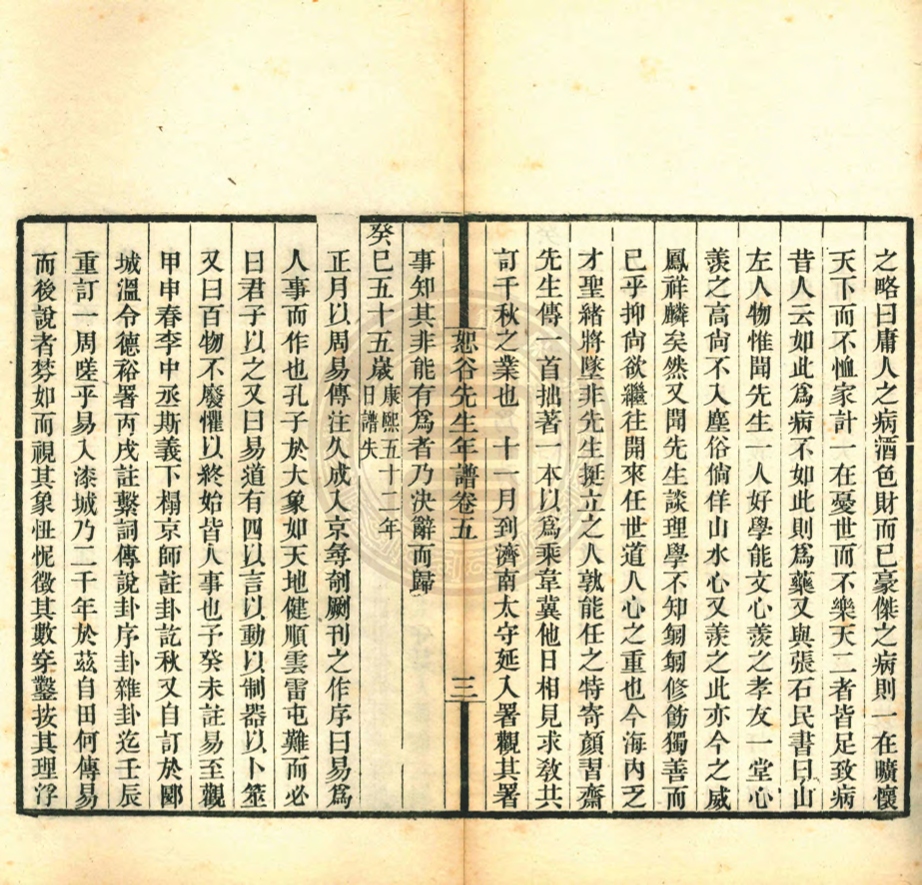 之略曰庸人之病酒色財而已豪傑之病則一在曠懷
天下而不恤家計一在憂世而不樂天二者皆足致病
昔人云如此爲病不如此則爲藥又與張石民書曰山
左人物惟聞先生一人好學能文心羨之孝友一堂心
羨之高尙不入塵俗倘佯山水心又羨之此亦今之威
鳳祥麟矣然又聞先生談理學不知匔匔修飭獨善而
已乎抑尙欲繼往開來任世道人心之重也今海內乏
才聖緒將墜非先生挺立之人孰能任之特寄顏習齋
先生傳一首拙著一本以爲乘韋冀他日相見求敎共
訂千秋之業也 十一月到濟南太守延入署觀其署
恕谷先生年譜卷五 三
事知其非能有爲者乃決辭而歸
癸巳五十五歲康熙五十二年
日譜失
正月以周易傳注久成入京尋剞劂刊之作序曰易爲
人事而作也孔子於大象如天地健順雲雷屯難而必
曰君子以之又曰易道有四以言以動以制器以卜筮
又曰百物不廢懼以終始皆人事也予癸未註易至觀
甲申春李中丞斯義下榻京師註卦訖秋又自訂於郾
城溫令德裕署丙戌註繫詞傳說卦序卦雜卦迄壬辰
重訂一周嗟乎易入漆城乃二千年於茲自田何傳易
而後說者棼如而視其象忸怩徵其數穿鑿按其理浮